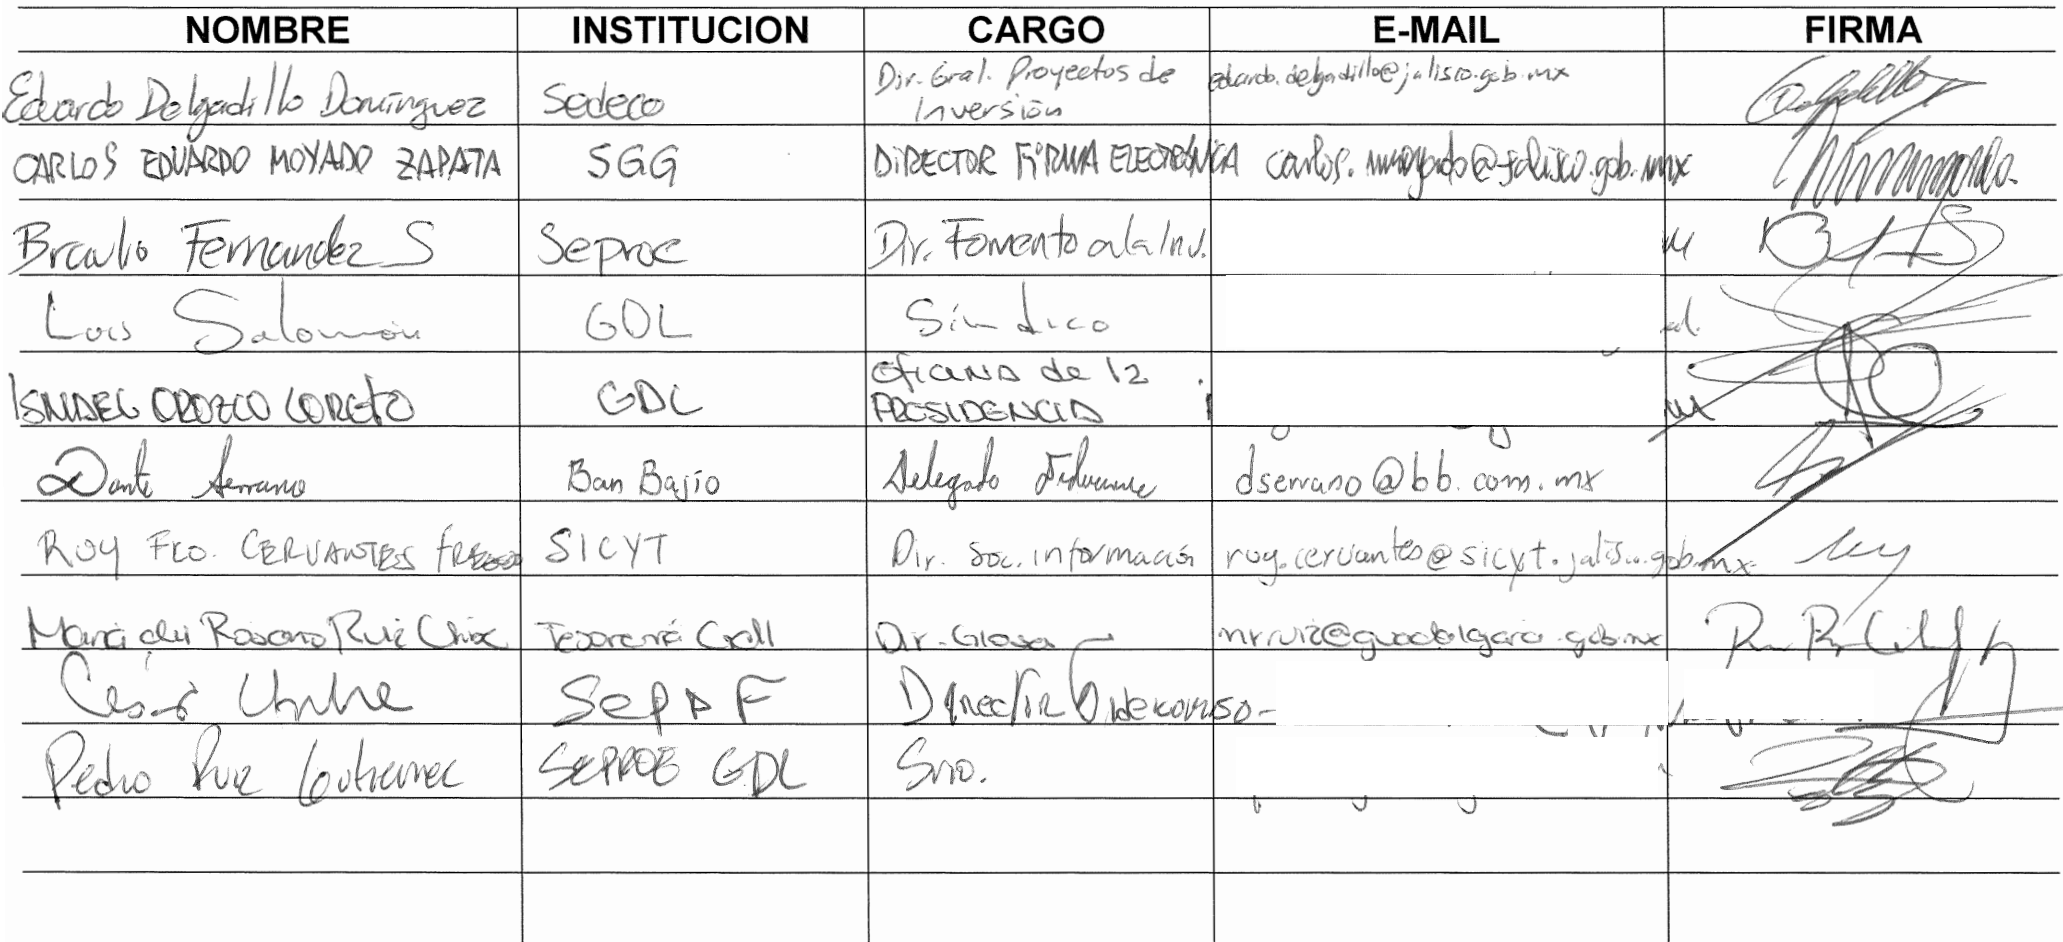 NOMBRE INSTITUCION CARGO E-MAIL FIRMA
Eduardo Delgadillo Domínguez Sedeco Dir. Gral. Proyectos de eduardo.delgadillo@jalisco.gob.mx
Inversión
CARLOS EDUARDO MOYADO ZAPATA SGG DIRECTOR FIRMA ELECTRÓNICA carlos.moyado@jalisco.gob.mx
Braulio Fernandez S Seproe Dir. Fomento a la Inv.
Luis Salomón GDL Síndico
OROZCO LORETO GDL Oficina de la
PRESIDENCIA
Dante Serrano Ban Bajío Delegado dserrano@bb.com.mx
ROY FCO. CERVANTES SICYT Dir. Soc. información roy.cervantes@sicyt.jalisco.gob.mx
Maria del Rosario Ruiz Tesorería Dir. Glosa mrruiz@guadalajara.gob.mx
César SEPAF Director
Pedro Ruiz Gutierrez SEPROE GDL Srio.